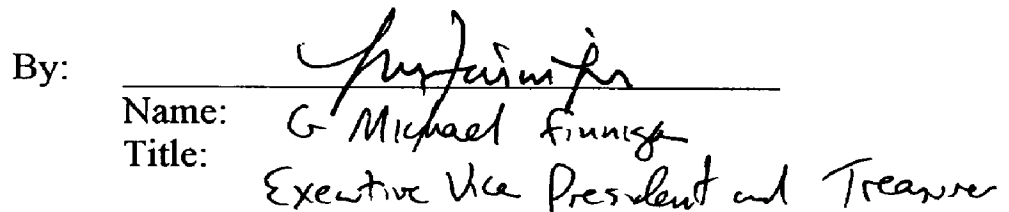 By:
Name: G Michael Finnigan
Title:
Executive Vice President and Treasurer